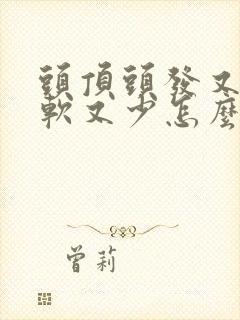 頭頂頭發又
軟又少怎麼
曾莉